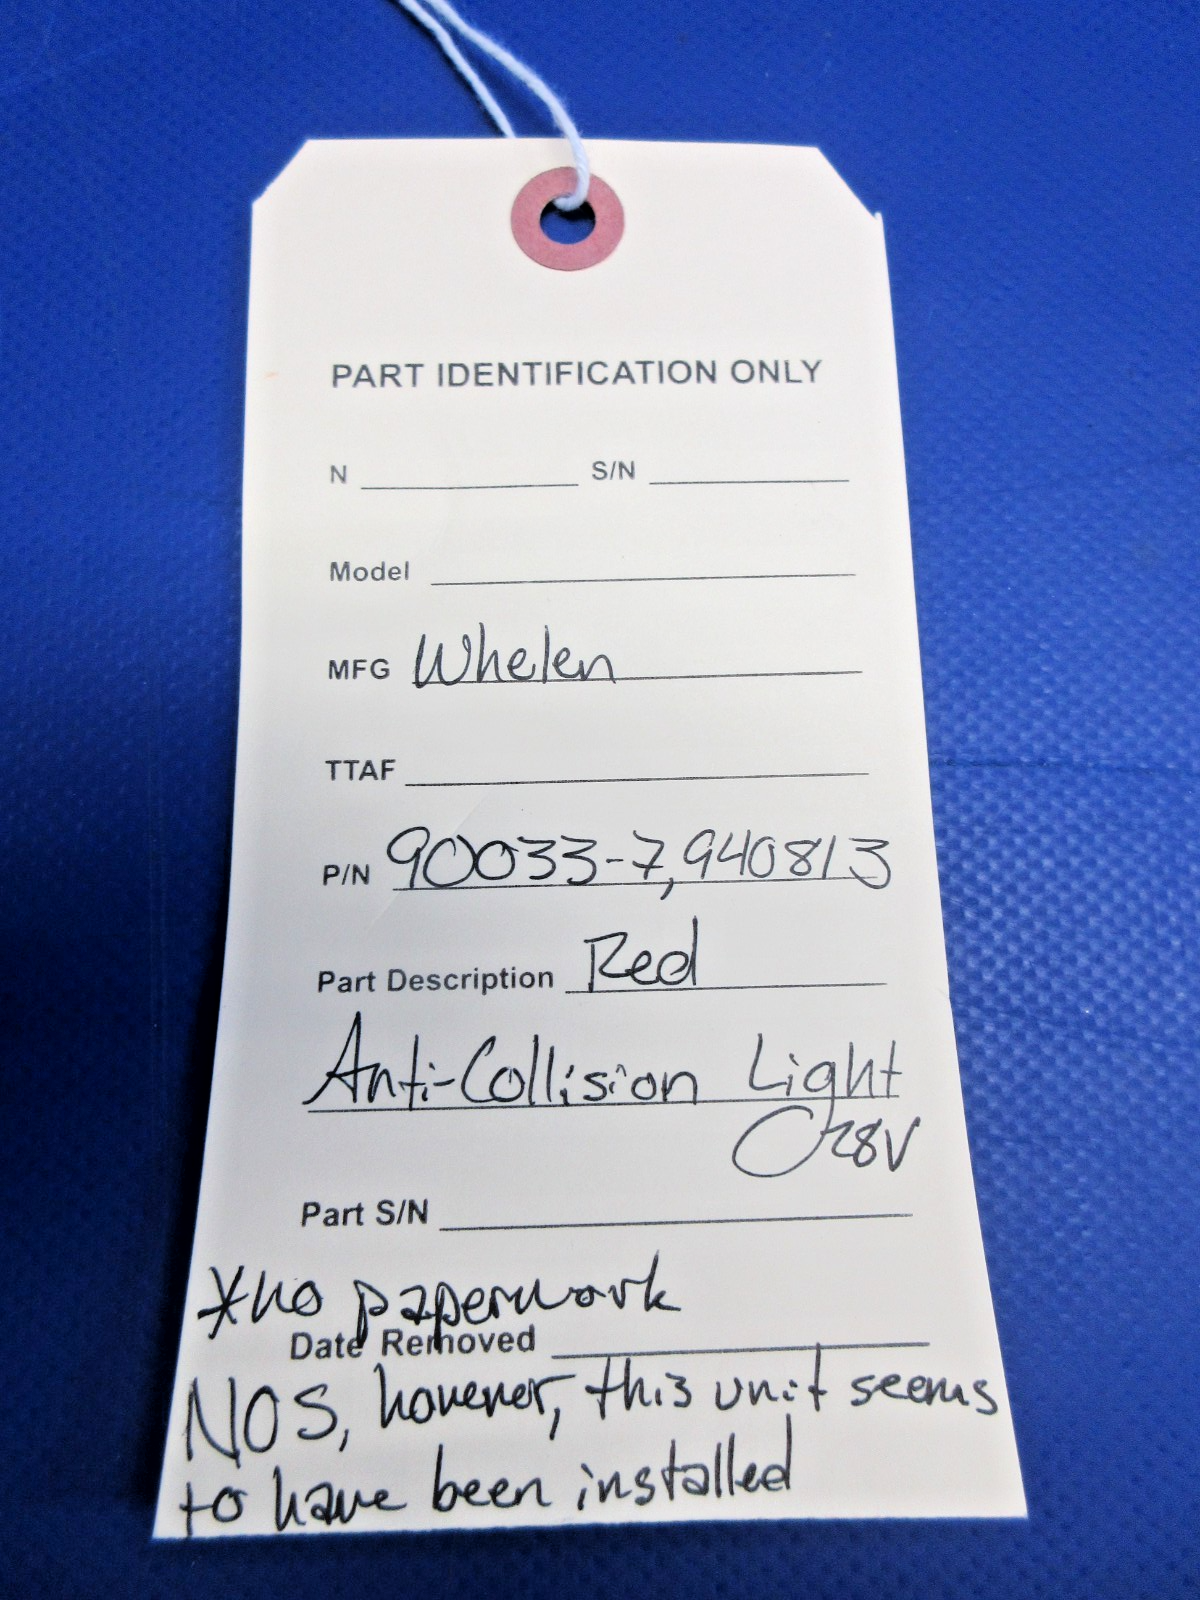 PART IDENTIFICATION ONLY
N S/N
Model
MFG Whelen
TTAF
P/N 90033-7, 940813
Part Description Red
Anti-Collision Light
28V
Part S/N
*no paperwork
Date Removed
NOS, however, this unit seems
to have been installed